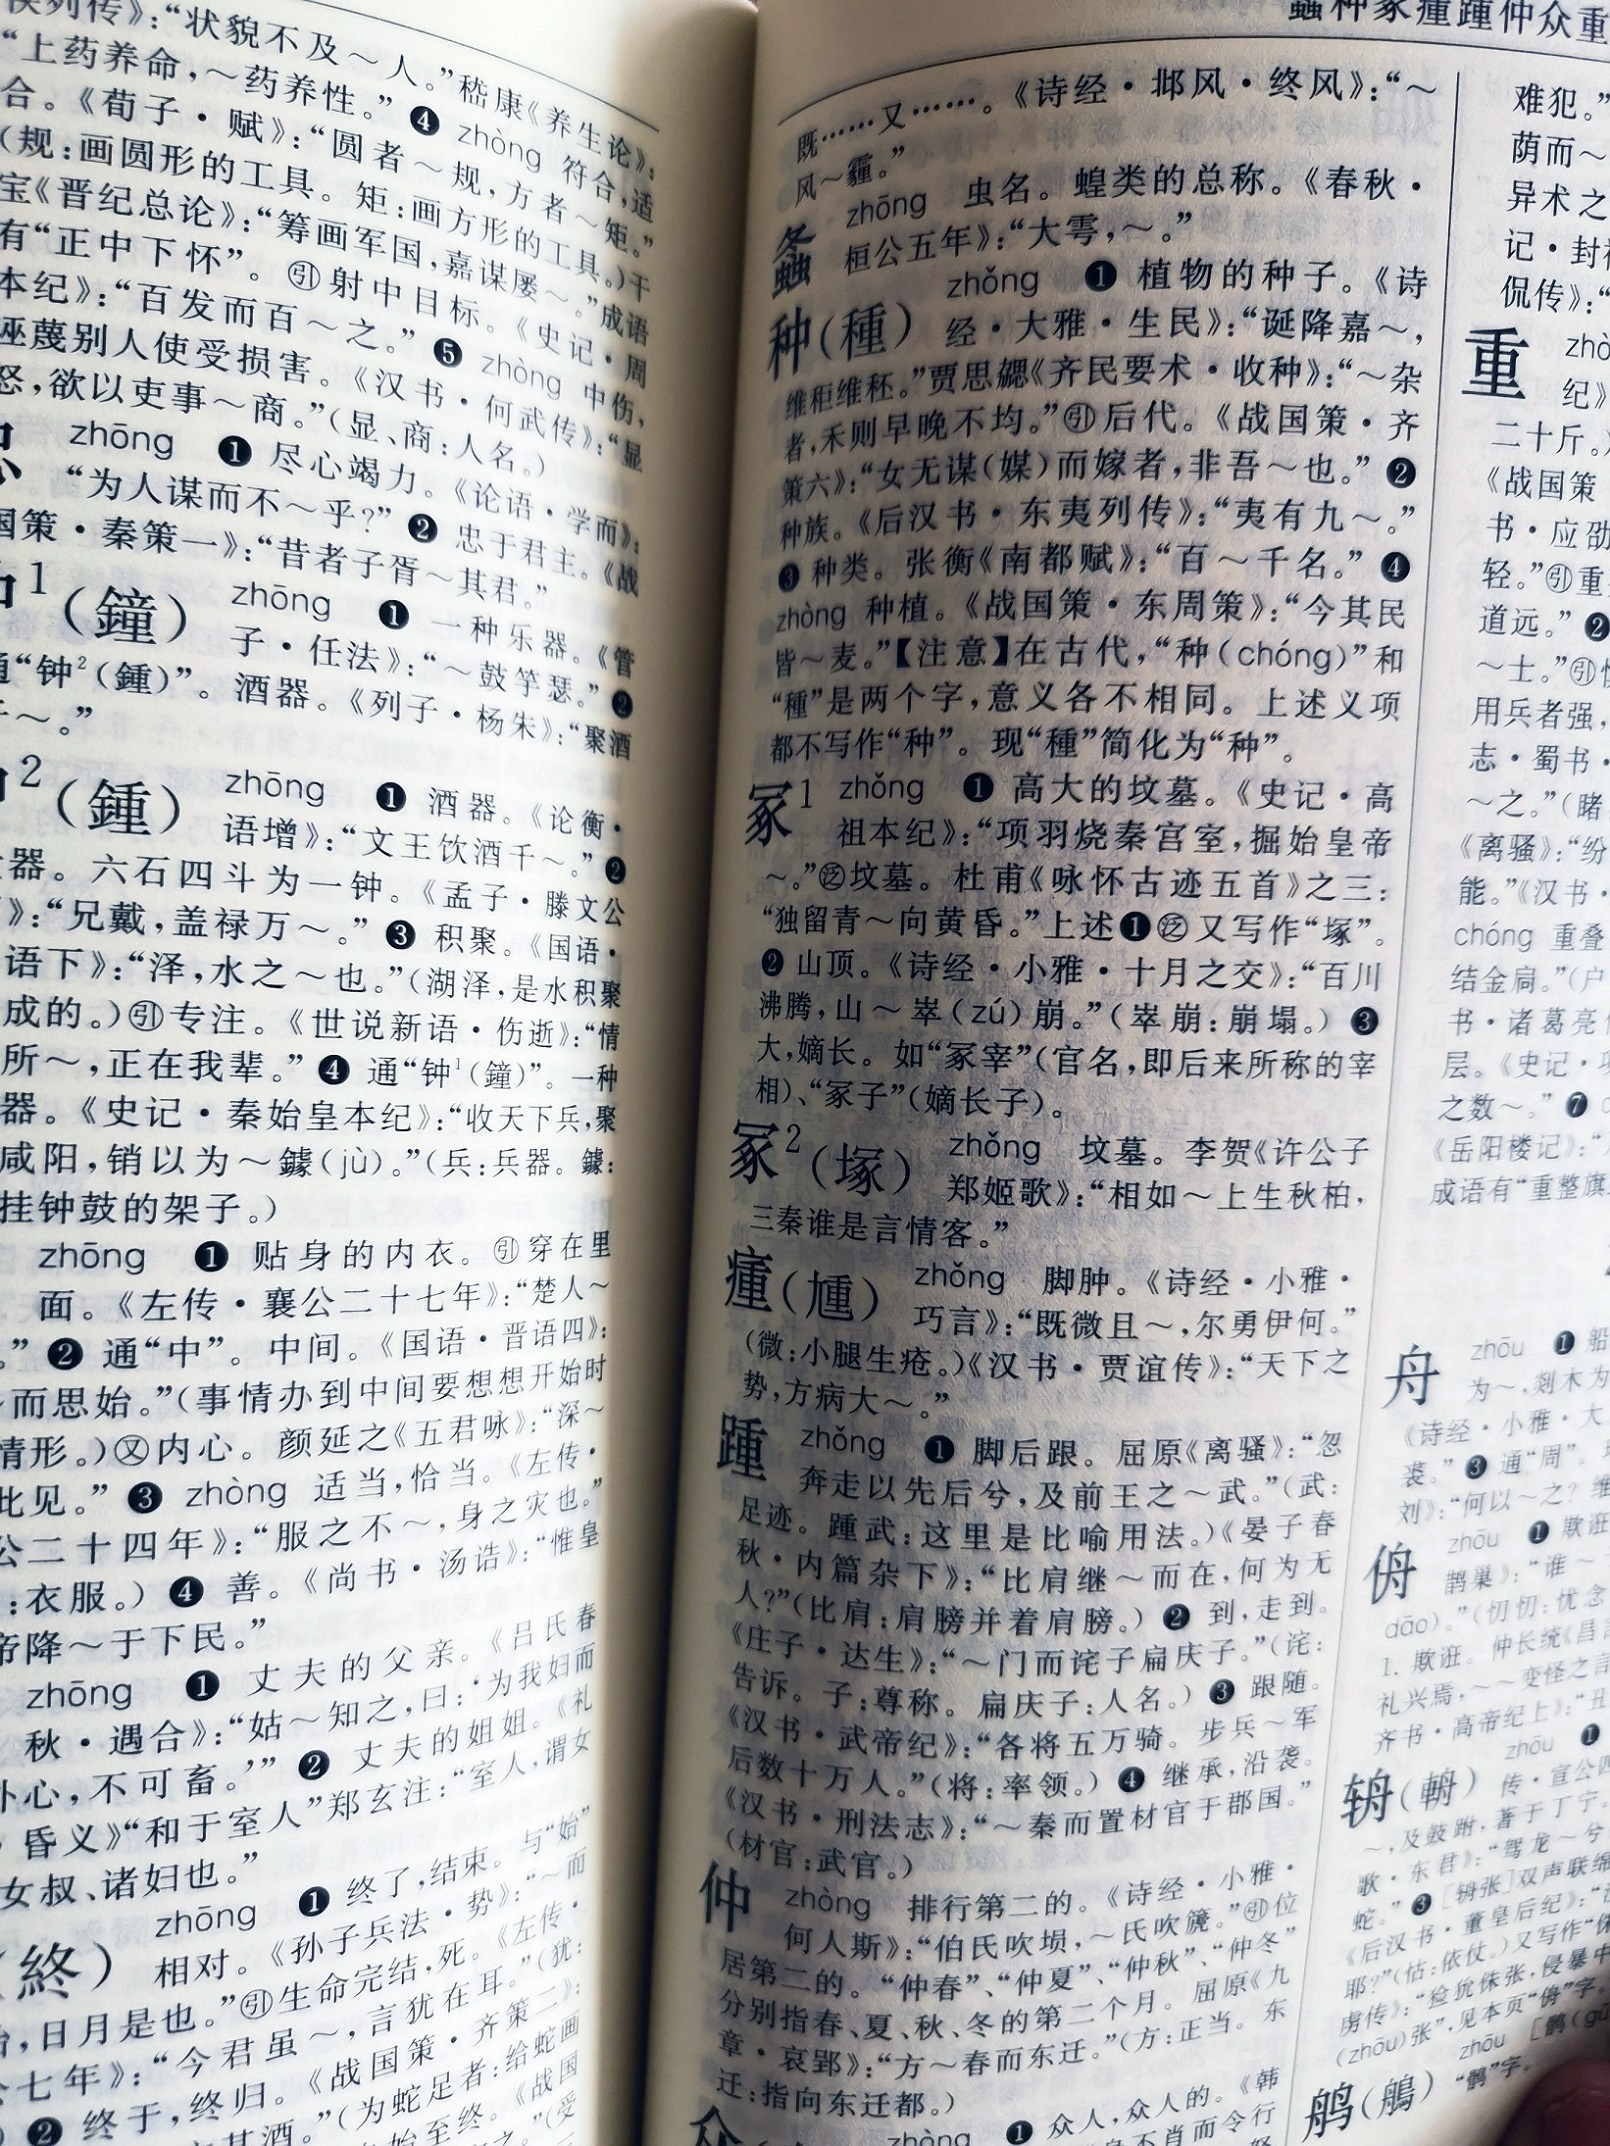 列传》：“状貌不及～人。”嵇康《养生论》：
“上药养命，～药养性。”❹ zhòng 符合，适
合。《荀子·赋》：“圆者～规，方者～矩。”
（规：画圆形的工具。矩：画方形的工具。）干
宝《晋纪总论》：“筹画军国，嘉谋屡～。”成语
有“正中下怀”。㊣射中目标。《史记·周
本纪》：“百发而百～之。”❺ zhòng 中伤，
诬蔑别人使受损害。《汉书·何武传》：“显
怒，欲以吏事～商。”（显、商：人名。）
zhōng ❶ 尽心竭力。《论语·学而》：
“为人谋而不～乎？”❷ 忠于君主。《战
国策·秦策一》：“昔者子胥～其君。”
1（鐘） zhōng ❶ 一种乐器。《管
子·任法》：“～鼓竽瑟。”❷
通“钟²（鍾）”。酒器。《列子·杨朱》：“聚酒
千～。”
2（鍾） zhōng ❶ 酒器。《论衡·
语增》：“文王饮酒千～。”❷
器。六石四斗为一钟。《孟子·滕文公
》：“兄戴，盖禄万～。”❸ 积聚。《国语·
语下》：“泽，水之～也。”（湖泽，是水积聚
成的。）引专注。《世说新语·伤逝》：“情
所～，正在我辈。”❹ 通“钟¹（鐘）”。一种
器。《史记·秦始皇本纪》：“收天下兵，聚
咸阳，销以为～鐻（jù）。”（兵：兵器。鐻：
挂钟鼓的架子。）
zhōng ❶ 贴身的内衣。引穿在里
面。《左传·襄公二十七年》：“楚人～
。”❷ 通“中”。中间。《国语·晋语四》：
而思始。”（事情办到中间要想想开始时
情形。）又内心。颜延之《五君咏》：“深～
此见。”❸ zhòng 适当，恰当。《左传·
公二十四年》：“服之不～，身之灾也。”
：衣服。）❹ 善。《尚书·汤诰》：“惟皇
帝降～于下民。”
zhōng ❶ 丈夫的父亲。《吕氏春
秋·遇合》：“姑～知之，曰：‘为我妇而
外心，不可畜。’”❷ 丈夫的姐姐。《礼
昏义》“和于室人”郑玄注：“室人，谓女
女叔、诸妇也。”
（終） zhōng ❶ 终了，结束。与“始”
相对。《孙子兵法·势》：“～而
始，日月是也。”引生命完结，死。《左传·
七年》：“今君虽～，言犹在耳。”（犹：
❷ 终于，终归。《战国策·齐策二》：
其酒。”（为蛇足者：给蛇画
始至终。《战国
蟲种冢瘇踵仲众重
既……又……。《诗经·邶风·终风》：“～
风～霾。”
螽 zhōng 虫名。蝗类的总称。《春秋·
桓公五年》：“大雩，～。”
种（種） zhǒng ❶ 植物的种子。《诗
经·大雅·生民》：“诞降嘉～，
维秬维秠。”贾思勰《齐民要术·收种》：“～杂
者，禾则早晚不均。”引后代。《战国策·齐
策六》：“女无谋（媒）而嫁者，非吾～也。”❷
种族。《后汉书·东夷列传》：“夷有九～。”
❸ 种类。张衡《南都赋》：“百～千名。”❹
zhòng 种植。《战国策·东周策》：“今其民
皆～麦。”【注意】在古代，“种（chóng）”和
“種”是两个字，意义各不相同。上述义项
都不写作“种”。现“種”简化为“种”。
冢1 zhǒng ❶ 高大的坟墓。《史记·高
祖本纪》：“项羽烧秦宫室，掘始皇帝
～。”泛坟墓。杜甫《咏怀古迹五首》之三：
“独留青～向黄昏。”上述❶泛又写作“塚”。
❷ 山顶。《诗经·小雅·十月之交》：“百川
沸腾，山～崒（zú）崩。”（崒崩：崩塌。）❸
大，嫡长。如“冢宰”（官名，即后来所称的宰
相）、“冢子”（嫡长子）。
冢2（塚） zhǒng 坟墓。李贺《许公子
郑姬歌》：“相如～上生秋柏，
三秦谁是言情客。”
瘇（尰） zhǒng 脚肿。《诗经·小雅·
巧言》：“既微且～，尔勇伊何。”
（微：小腿生疮。）《汉书·贾谊传》：“天下之
势，方病大～。”
踵 zhǒng ❶ 脚后跟。屈原《离骚》：“忽
奔走以先后兮，及前王之～武。”（武：
足迹。踵武：这里是比喻用法。）《晏子春
秋·内篇杂下》：“比肩继～而在，何为无
人？”（比肩：肩膀并着肩膀。）❷ 到，走到。
《庄子·达生》：“～门而诧子扁庆子。”（诧：
告诉。子：尊称。扁庆子：人名。）❸ 跟随。
《汉书·武帝纪》：“各将五万骑。步兵～军
后数十万人。”（将：率领。）❹ 继承，沿袭。
《汉书·刑法志》：“～秦而置材官于郡国。”
（材官：武官。）
仲 zhòng 排行第二的。《诗经·小雅·
何人斯》：“伯氏吹埙，～氏吹篪。”引位
居第二的。“仲春”、“仲夏”、“仲秋”、“仲冬”
分别指春、夏、秋、冬的第二个月。屈原《九
章·哀郢》：“方～春而东迁。”（方：正当。东
迁：指向东迁都。）
zhòng ❶ 众人，众人的。《韩
不肖而令行
难犯。”
荫而～
异术之
记·封
侃传》：“
重 zhò
纪》
二十斤。）
《战国策
书·应劭
轻。”引重
道远。”❷
～士。”引
用兵者强，
志·蜀书·
～之。”（睹
《离骚》：“纷
能。”《汉书·
chóng 重叠
结金扃。”（户
书·诸葛亮
层。《史记·项
之数～。”❼
《岳阳楼记》：“
成语有“重整旗
舟 zhōu ❶ 船
为～，剡木为
《诗经·小雅·大
裘。”❸ 通“周”。
刘》：“何以～之？维
侜 zhōu ❶ 欺诳
鹊巢》：“谁～
dāo）。”（忉忉：忧念
1. 欺诳。仲长统《昌言
礼兴焉，～～变怪之言
齐书·高帝纪上》：“丑
辀（輈） zhōu ❶
传·宣公四
～，及鼓跗，著于丁宁。
歌·东君》：“驾龙～兮
蛇。”❸［辀张］双声联绵
《后汉书·董皇后纪》：“
耶？”（怙：依仗。）又写作“侏
虏传》：“猃狁侏张，侵暴中
（zhōu）张”，见本页“侜”字。
鸼（鵃） zhōu ［鹘（gǔ
“鹘”字。